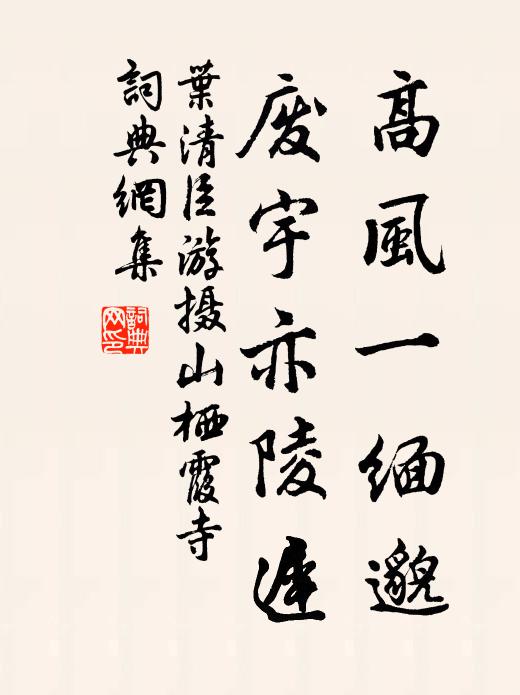 高風一緬邈
废宇亦陵遲
葉清臣游摄山栖霞寺
詞典網集
詞典网印